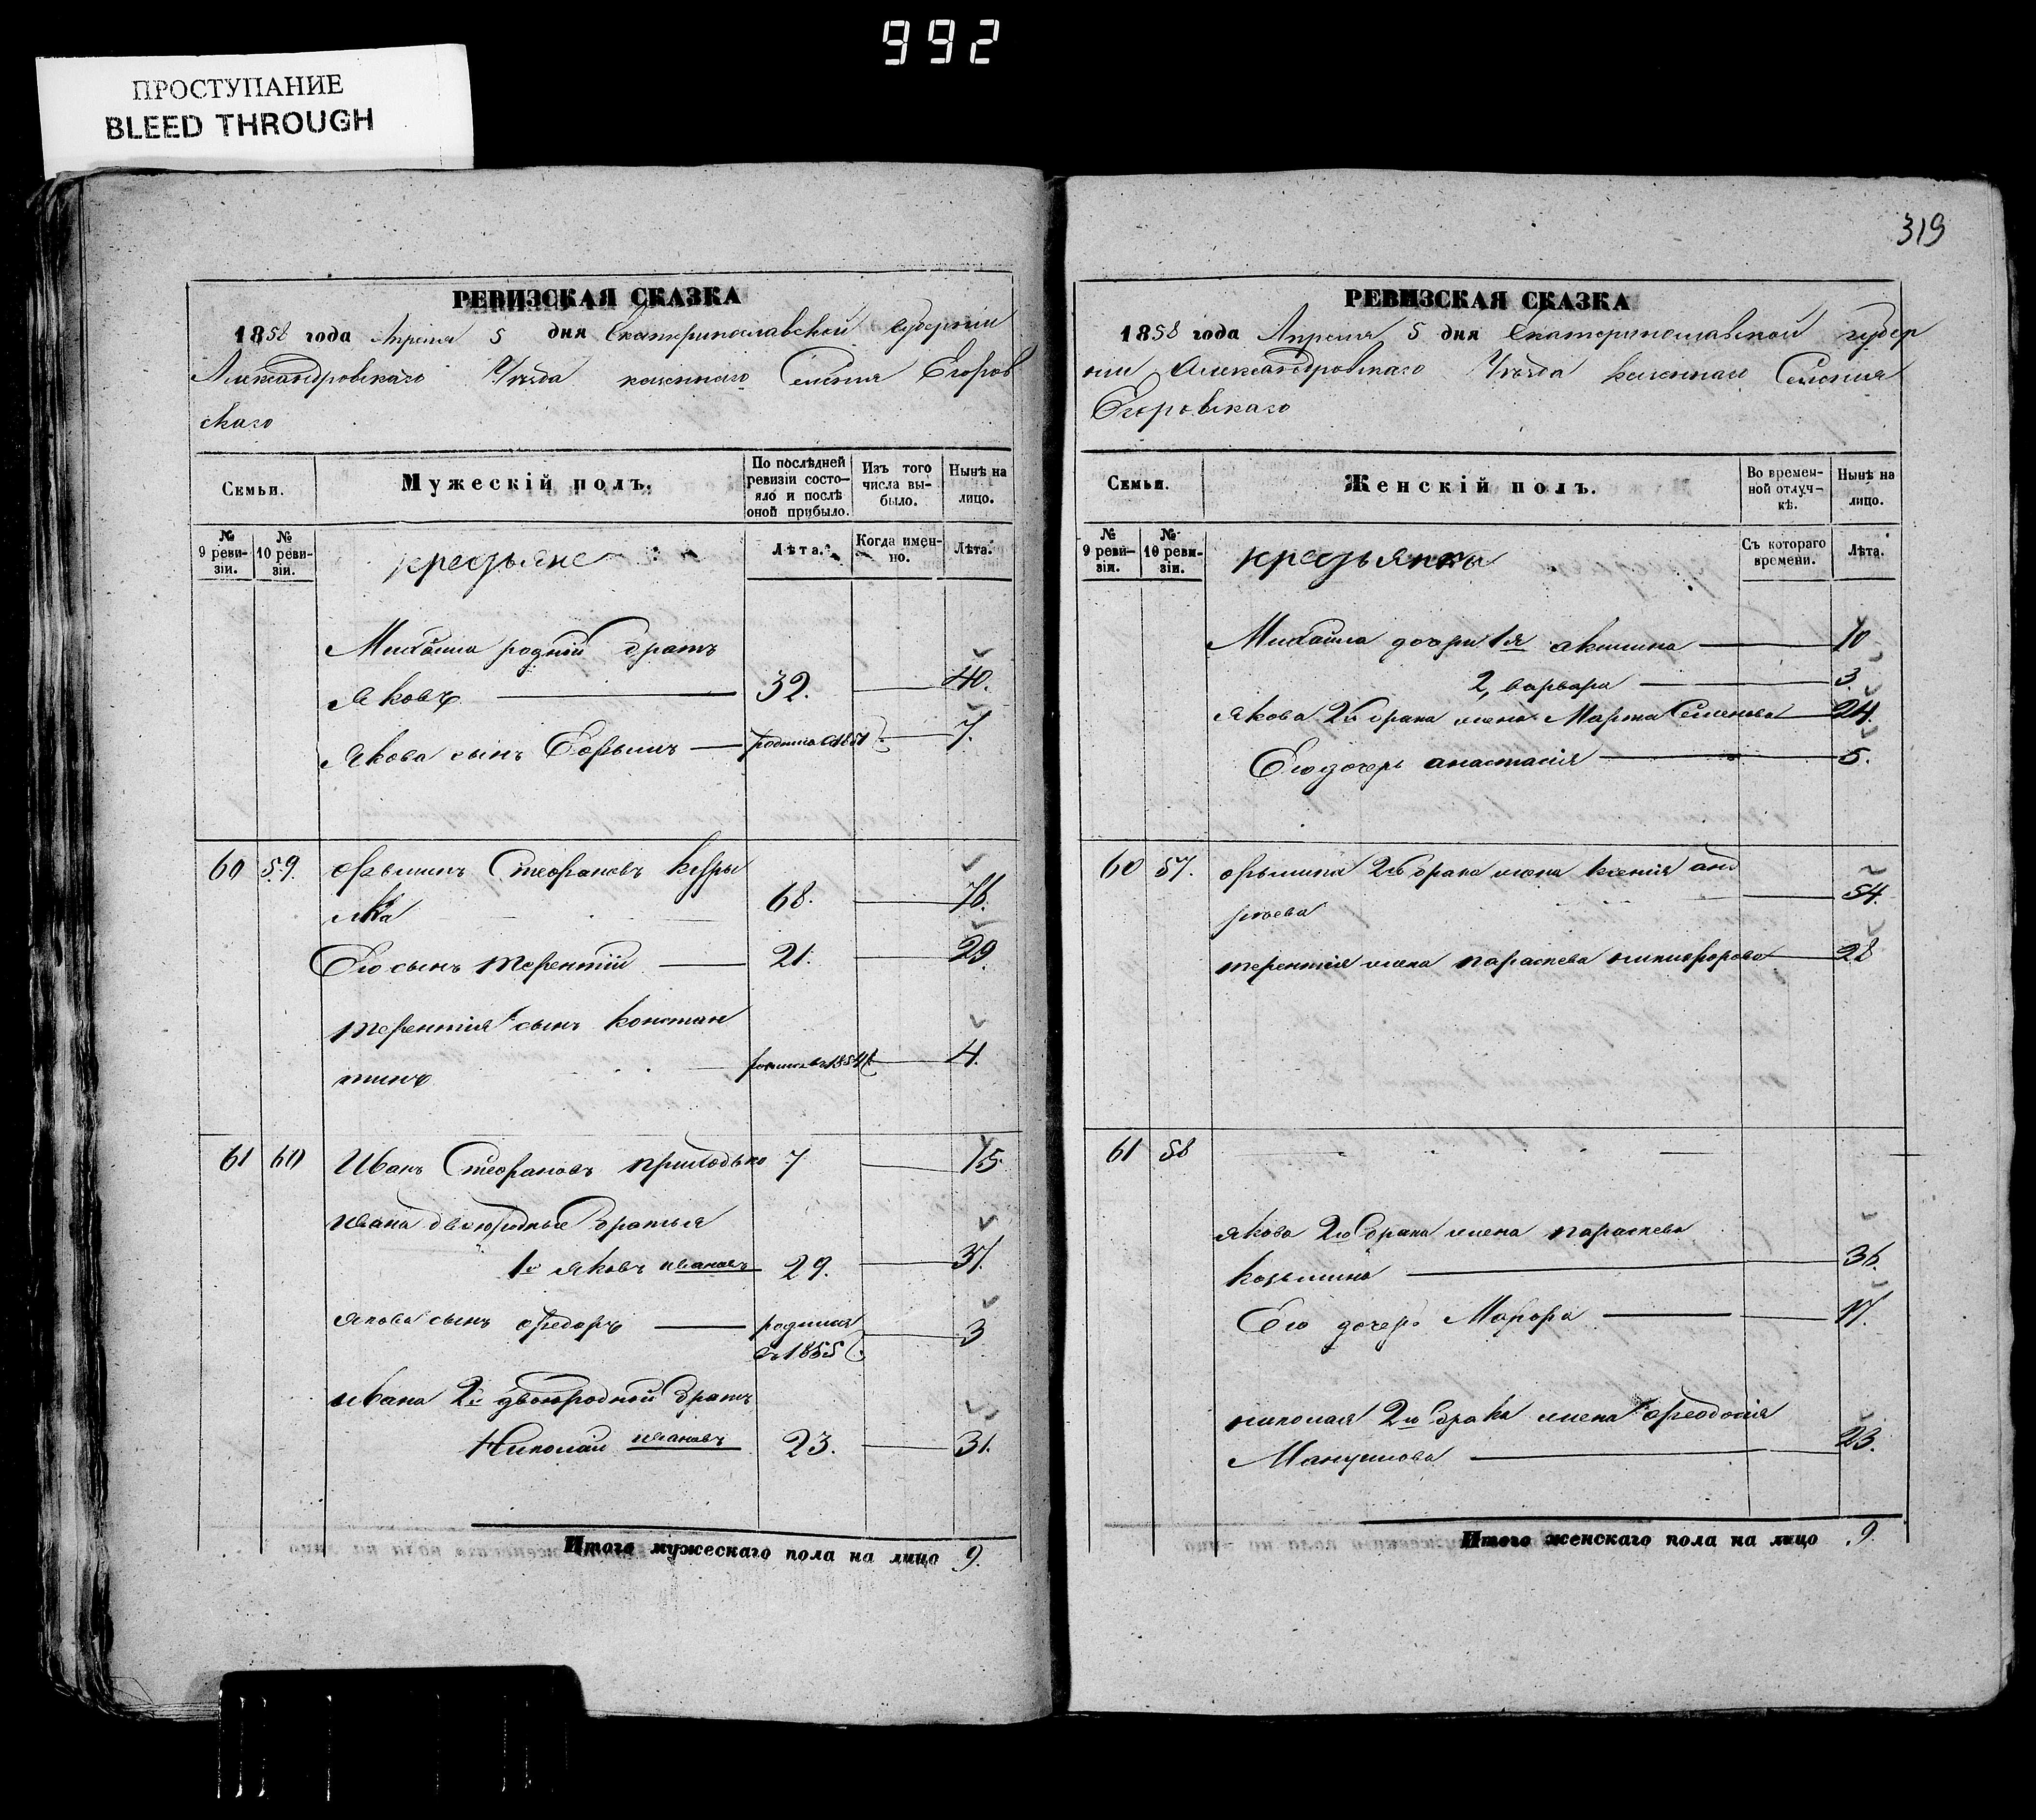 992
ПРОСТУПАНИЕ
BLEED THROUGH
РЕВИЗСКАЯ СКАЗКА
1858 года Апреля 5 дня Екатеринославской Губерніи
Александровскаго Уѣзда казеннаго Селенія Егоров
скаго
Семьи.
Мужескій полъ.
По послѣдней ревизіи состо-яло и послѣ оной прибыло.
Изъ того числа вы-было.
Нынѣ на лицо.
№ 9 реви-зіи.
№ 10 реви-зіи.
крестьяне
Лѣта.
Когда имен-но.
Лѣта.
Михайла родній братъ
Яковъ 32. 40.
Якова сынъ Ефимъ 1851 7.
60 59. Стефановъ
68. 76.
Его сынъ терентій 21. 29.
терентія сынъ констан
тинъ 1854 4.
61 60 Иванъ Стефановъ приходько 7 15
Ивана двоюродные братья
1й Яковъ ивановъ 29. 37.
Якова сынъ Федоръ родился 3
въ 1855
ивана 2й двоюродной братъ
Николай ивановъ 23. 31.
Итого мужескаго пола на лицо 9.
319
РЕВИЗСКАЯ СКАЗКА
1858 года Апреля 5 дня Екатеринославской губер
ніи Александровскаго Уѣзда казеннаго Селенія
Егоровскаго
Семьи.
Женскій полъ.
Во времен-ной отлуч-кѣ.
Нынѣ на лицо.
№ 9 реви-зіи.
№ 10 реви-зіи.
крестьянки
Съ котораго времени.
Лѣта.
Михайла дочери 1я акилина 10
2, варвара 3
Якова 2го брака жена Марфа Семенова 24.
Его дочерь анастасія 5.
60 57. 2го брака жена ксенія анд
реева 54.
терентія жена параскева никифорова 28
61 58
якова 2го брака жена параскева
козьмина 36.
Его дочерь Мавра 17.
николая 2го брака жена феодосія
Мануилова 23.
Итого женскаго пола на лицо 9.